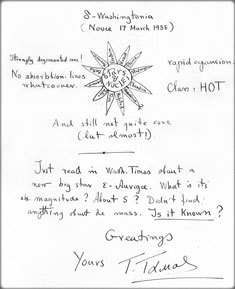 S-Washingtonia
( Novce 17 March 1938 )
Strongly degenerated one!
No absorbtion-lines
whatsoever.
STARS
OF
LUCK
rapid expansion.
Class: HOT
And still not quite sure
(but almost!)
Just read in Wash. Times about a
new big star E-Aurigae. What is its
abs. magnitude? About 5? Didn't find
anything about the mass. Is it known?
Greetings
Yours